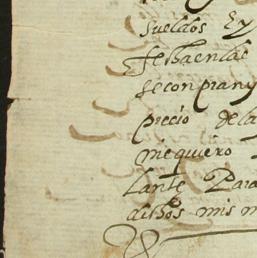 sueldos Ey
fe haenlas
secompran y
precio dela
mequiero
lante Para
dichos mis m